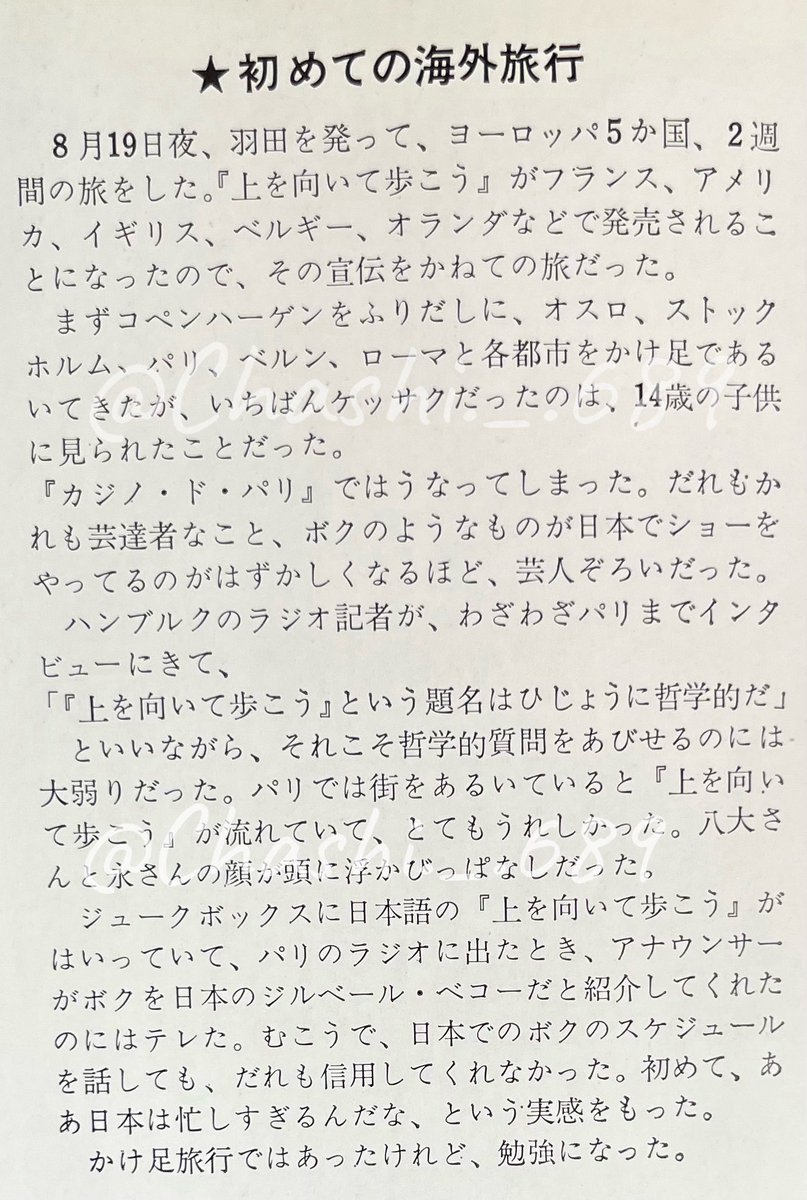 ★初めての海外旅行
8月19日夜、羽田を発って、ヨーロッパ5か国、2週
間の旅をした。『上を向いて歩こう』がフランス、アメリ
カ、イギリス、ベルギー、オランダなどで発売されるこ
とになったので、その宣伝をかねての旅だった。
まずコペンハーゲンをふりだしに、オスロ、ストック
ホルム、パリ、ベルン、ローマと各都市をかけ足である
いてきたが、いちばんケッサクだったのは、14歳の子供
に見られたことだった。
『カジノ・ド・パリ』ではうなってしまった。だれもか
れも芸達者なこと、ボクのようなものが日本でショーを
やってるのがはずかしくなるほど、芸人ぞろいだった。
ハンブルクのラジオ記者が、わざわざパリまでインタ
ビューにきて、
「『上を向いて歩こう』という題名はひじょうに哲学的だ」
といいながら、それこそ哲学的質問をあびせるのには
大弱りだった。パリでは街をあるいていると『上を向い
て歩こう』が流れていて、とてもうれしかった。八大さ
んと永さんの顔が頭に浮かびっぱなしだった。
ジュークボックスに日本語の『上を向いて歩こう』が
はいっていて、パリのラジオに出たとき、アナウンサー
がボクを日本のジルベール・ベコーだと紹介してくれた
のにはテレた。むこうで、日本でのボクのスケジュール
を話しても、だれも信用してくれなかった。初めて、あ
あ日本は忙しすぎるんだな、という実感をもった。
かけ足旅行ではあったけれど、勉強になった。
@Chashi._.689
@Chashi._.689